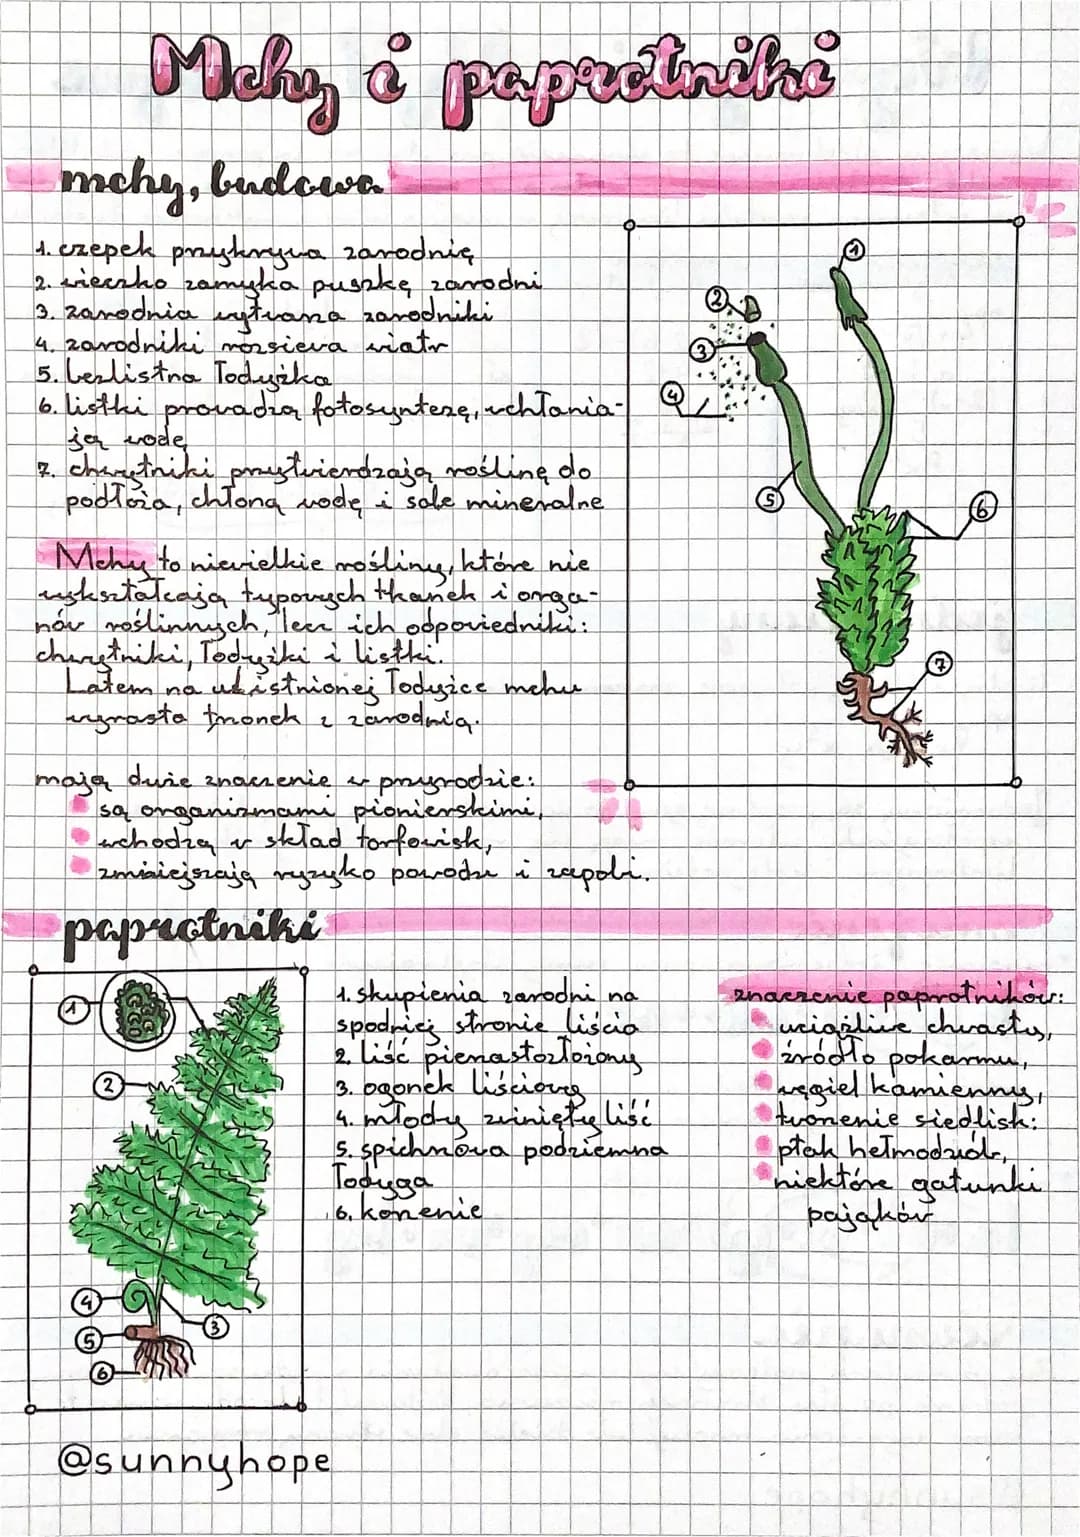 Mchy i paprotniki
mchy, budowa
1. czepek przykrywa zarodnię
2. wieczko zamyka puszkę zarodni
3. zarodnia wytwarza zarodniki
4. zarodniki rozsiewa wiatr
5. bezlistna łodyżka
6. listki prowadzą fotosyntezę, wchłania-
ją wodę
7. chwytniki przytwierdzają roślinę do
podłoża, chłoną wodę i sole mineralne
1
2
3
4
5
6
7
Mchy to niewielkie rośliny, które nie
wykształcają typowych tkanek i orga-
nów roślinnych, lecz ich odpowiedniki:
chwytniki, łodyżki i listki.
Latem na ulistnionej łodyżce mchu
wyrasta trzonek z zarodnią.
mają duże znaczenie w przyrodzie:
są organizmami pionierskimi,
wchodzą w skład torfowisk,
zmniejszają ryzyko powodzi i
paprotniki
1
2
4
3
5
6
1. skupienia zarodni na
spodniej stronie liścia
2. liść pierzastozłożony
3. ogonek liściowy
4. młody zwinięty liść
5. spichrzowa podziemna
łodyga
6. korzenie
znaczenie paprotników:
uciążliwe chwasty,
źródło pokarmu,
węgiel kamienny,
tworzenie siedlisk:
ptak hełmodziób,
niektóre gatunki
pająków
@sunnyhope